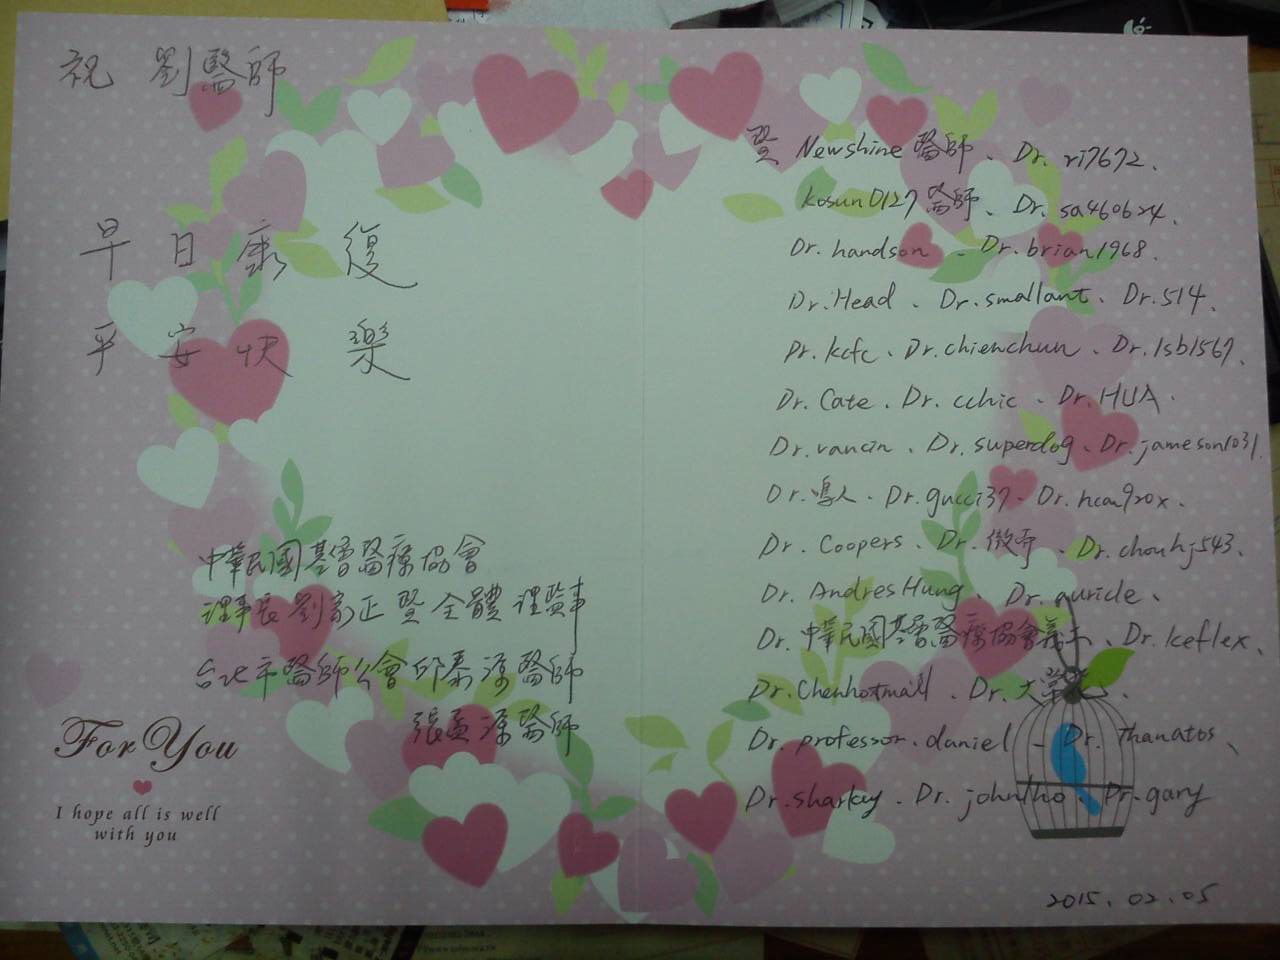 祝 劉醫師
早日康復
平安快樂
中華民國基層醫療協會
理事長 劉家正 暨 全體 理監事
台北市醫師公會 邱泰源醫師
張孟源醫師
For You
I hope all is well
with you
暨 Newshine 醫師、Dr. ri7672、
kosun0127 醫師、Dr. sa460624、
Dr. handson、Dr. brian1968、
Dr. Head、Dr. smallant、Dr. 514、
Dr. kcfc、Dr. chienchun、Dr. lsb1567、
Dr. Cate、Dr. cchic、Dr. HUA、
Dr. vancin、Dr. superdog、Dr. jameson1031、
Dr. 人、Dr. gucci37、Dr. ncan920x、
Dr. Coopers、Dr. 、Dr. chouhj543、
Dr. Andres Hung、Dr. auricle、
Dr. 中華民國基層醫療協會義工、Dr. keflex、
Dr. Chenhotmail、Dr. 大
Dr. professor.daniel、Dr. Thanatos、
Dr. sharkey、Dr. johntho、Dr. gary
2015.02.05